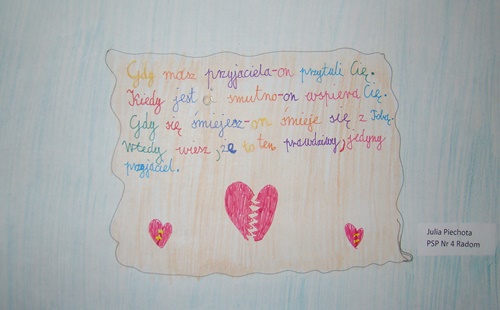 Gdy masz przyjaciela-on przytuli Cię.
Kiedy jest ci smutno-on wspiera Cię.
Gdy się śmiejesz-on śmieje się z Tobą.
Wtedy wiesz, że to ten prawdziwy, jedyny
przyjaciel.
Julia Piechota
PSP Nr 4 Radom